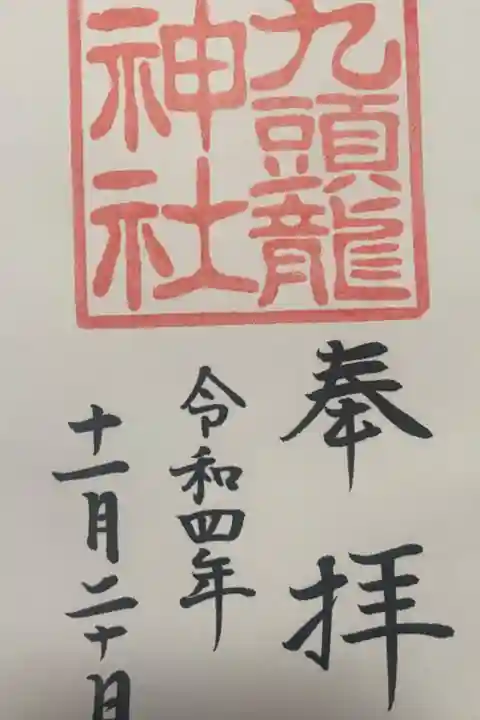 九頭龍
神社
奉拝
令和四年
十一月二十日